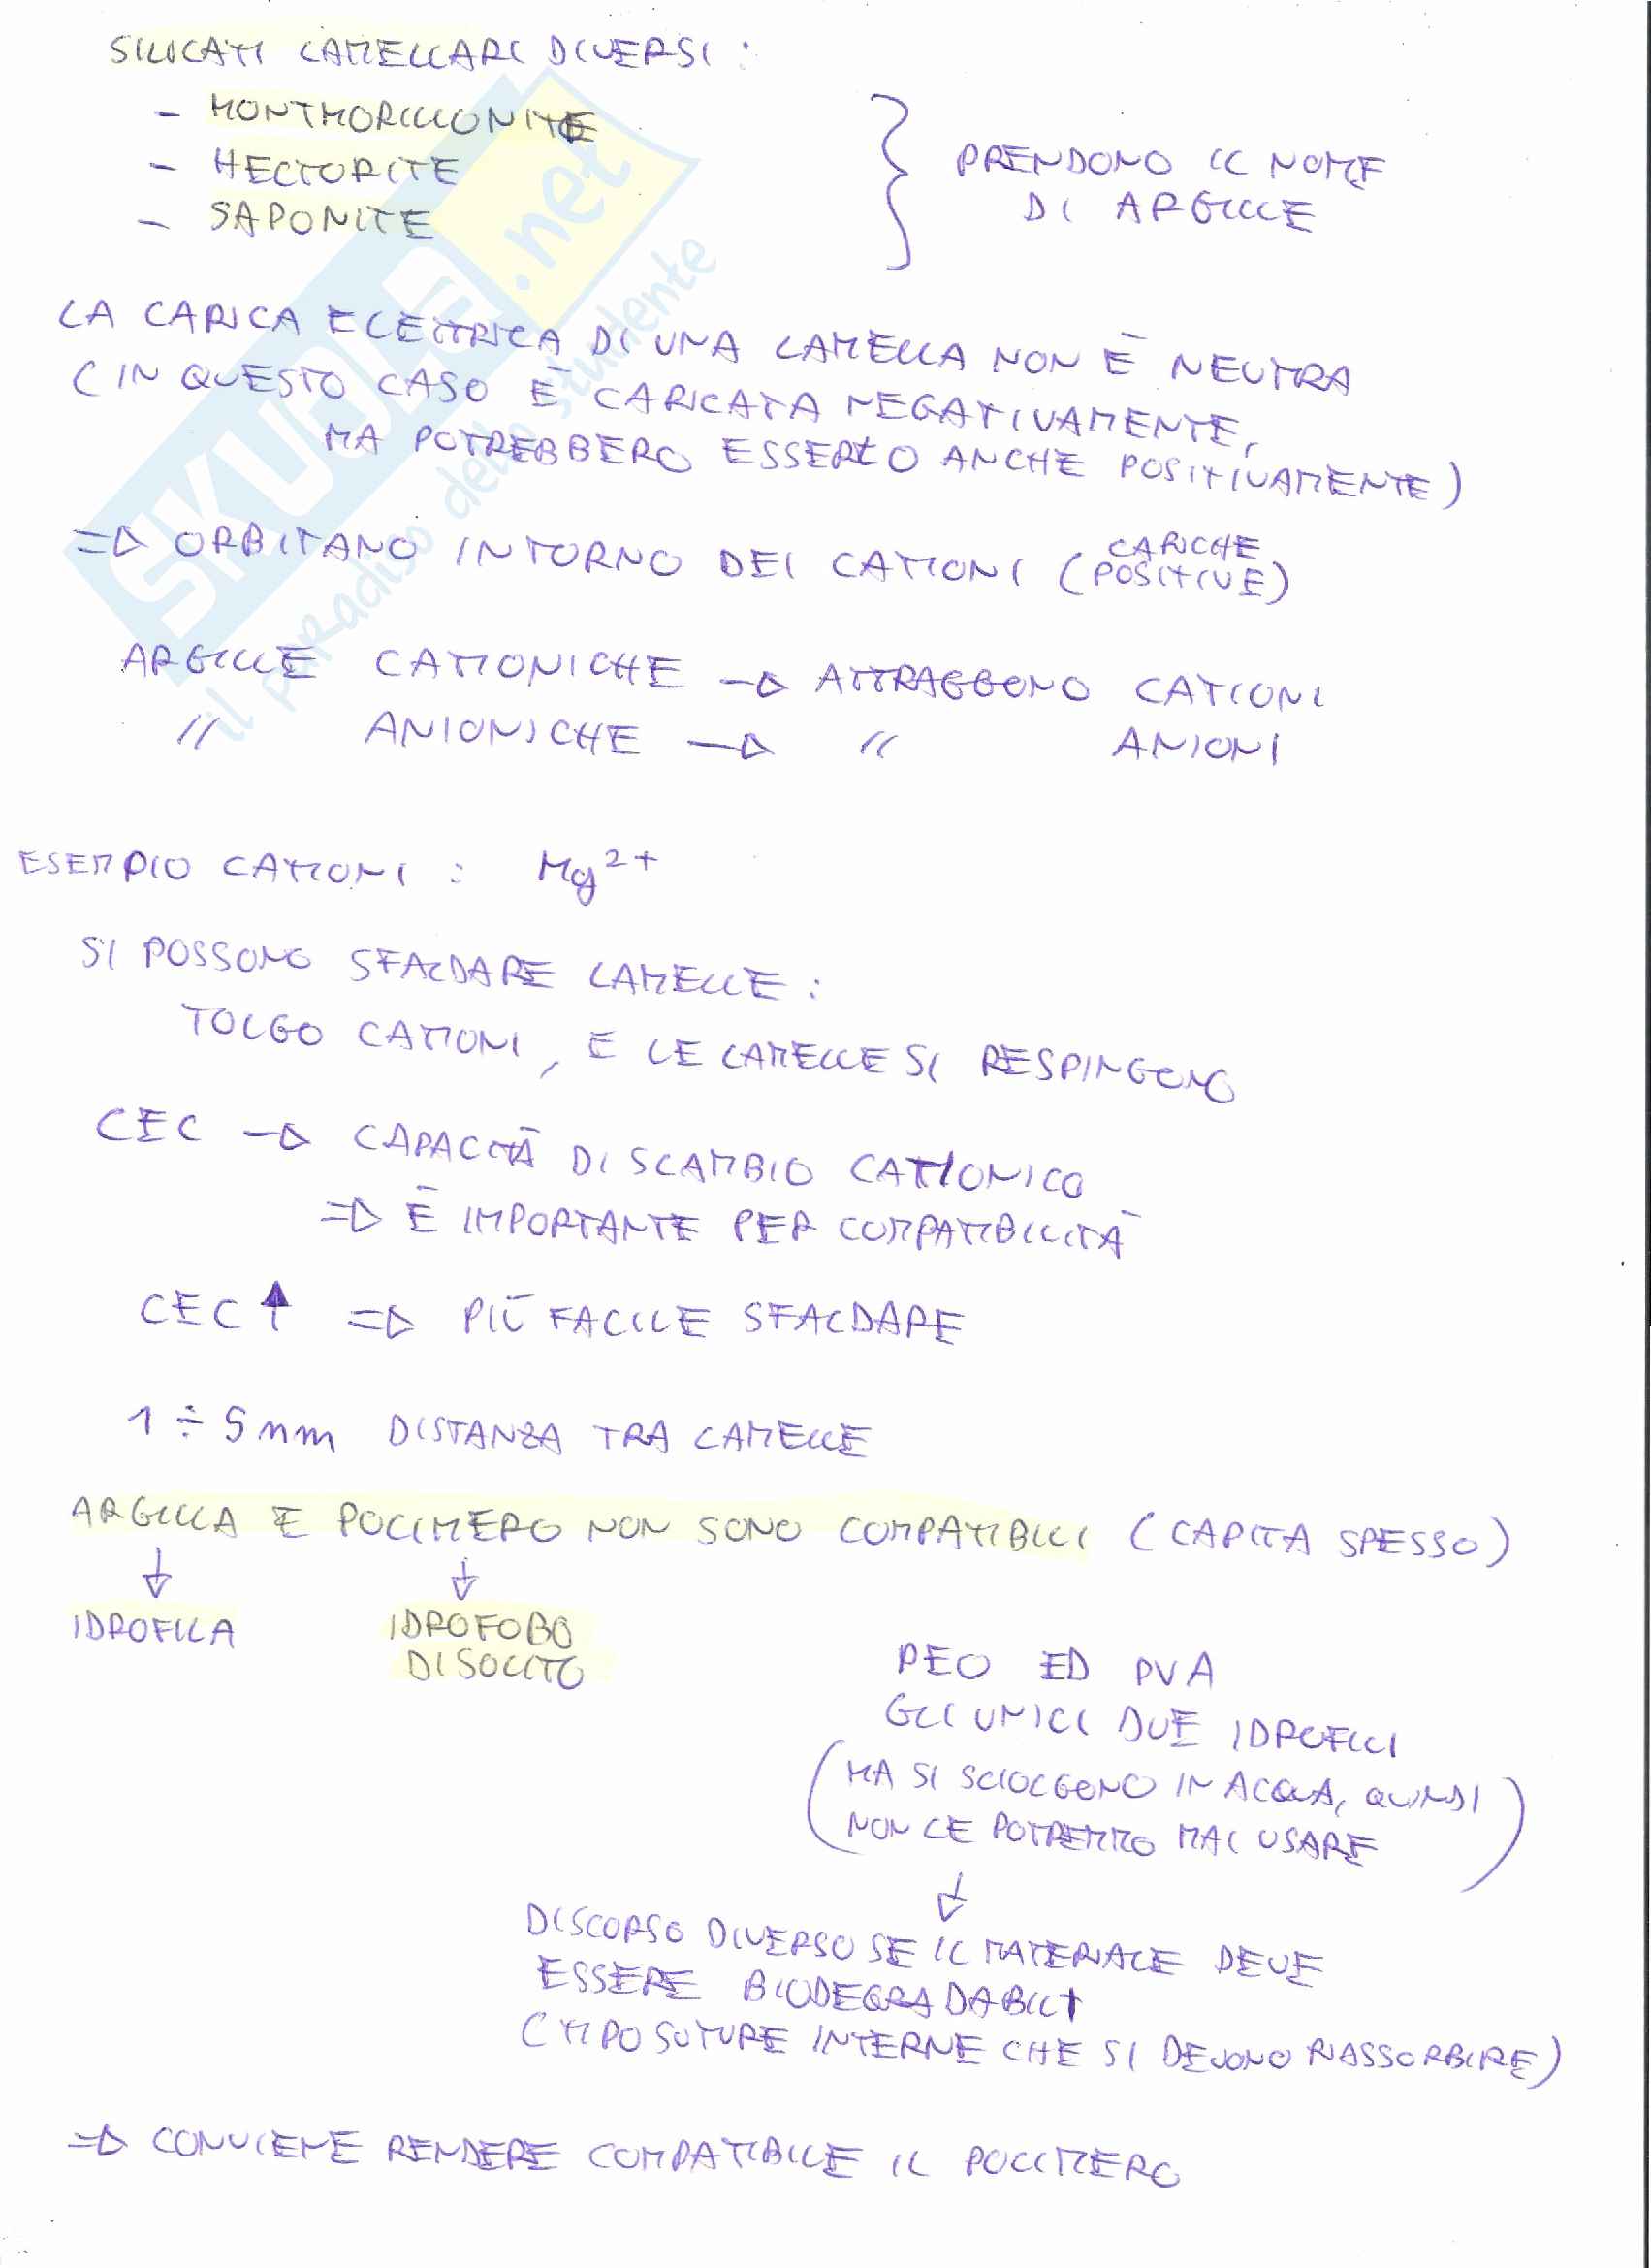 SILICATI LAMELLARI DIVERSI :
- MONTMORILLONITE
- HECTORITE
- SAPONITE
} PRENDONO IL NOME
DI ARGILLE
LA CARICA ELETTRICA DI UNA LAMELLA NON È NEUTRA
(IN QUESTO CASO È CARICATA NEGATIVAMENTE,
MA POTREBBERO ESSERLO ANCHE POSITIVAMENTE)
=> ORBITANO INTORNO DEI CATIONI (CARICHE POSITIVE)
ARGILLE CATIONICHE -> ATTRAGGONO CATIONI
// ANIONICHE -> // ANIONI
ESEMPIO CATIONI : Mg²⁺
SI POSSONO SFALDARE LAMELLE :
TOLGO CATIONI, E LE LAMELLE SI RESPINGONO
CEC -> CAPACITÀ DI SCAMBIO CATIONICO
=> È IMPORTANTE PER COMPATIBILITÀ
CEC ↑ => PIÙ FACILE SFALDARE
1 ÷ 5 nm DISTANZA TRA LAMELLE
ARGILLA E POLIMERO NON SONO COMPATIBILI (CAPITA SPESSO)
↓ ↓
IDROFILA IDROFOBO
DI SOLITO
PEO ED PVA
GLI UNICI DUE IDROFILI
(MA SI SCIOLGONO IN ACQUA, QUINDI
NON LE POTREMMO MAI USARE)
↓
DISCORSO DIVERSO SE IL MATERIALE DEVE
ESSERE BIODEGRADABILE
(TIPO SUTURE INTERNE CHE SI DEVONO RIASSORBIRE)
=> CONVIENE RENDERE COMPATIBILE IL POLIMERO
SKUOLa.net
il paradiso dello studente